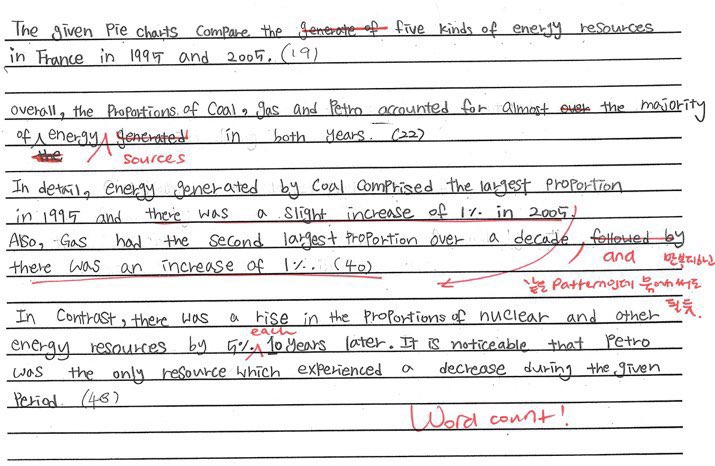 The given Pie charts compare the generate of five kinds of energy resources
in France in 1995 and 2005. (19)
overall, the proportions of Coal, gas and Petro accounted for almost over the majority
of ^ energy ^ generated in both years. (22)
the sources
In detail, energy generated by Coal comprised the largest proportion
in 1995 and there was a slight increase of 1% in 2005.
Also, Gas had the second largest proportion over a decade, followed by
and
there was an increase of 1%. (40)
Pattern인데 묶어써도
될듯.
In Contrast, there was a rise in the proportions of nuclear and other
each
energy resources by 5% ^ 10 years later. It is noticeable that Petro
was the only resource which experienced a decrease during the given
Period. (48)
Word count!